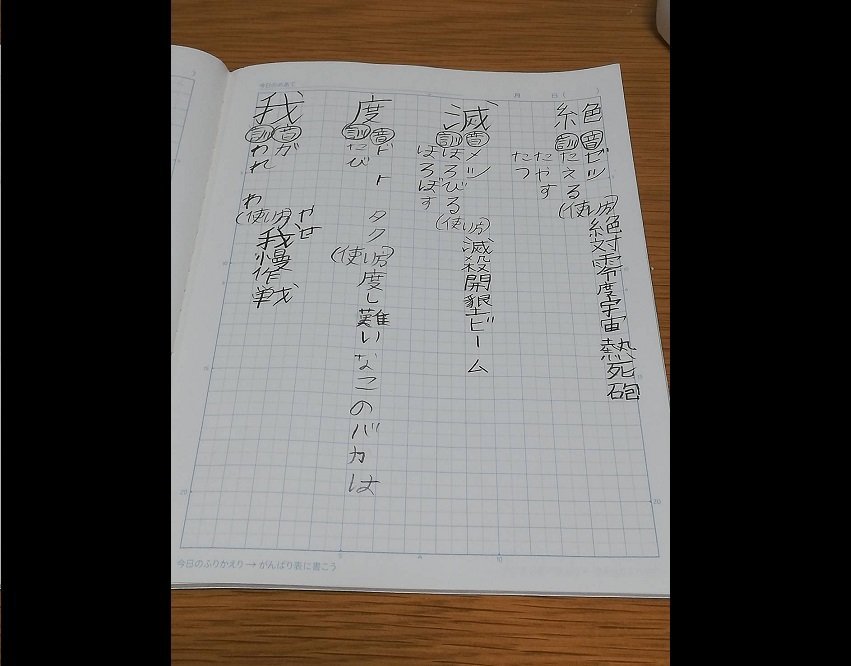 今日のめあて
月 日( )
絶
音 ゼツ
訓 たえる
たやす
たつ
(使い方)絶対零度宇宙熱死砲
滅
音 メツ
訓 ほろびる
ほろぼす
(使い方)滅殺開墾ビーム
度
音 ド ト タク
訓 たび
(使い方)度し難いなこのバカは
我
音 が
訓 われ わ
(使い方)やせ我慢作戦
5
10
15
20
20
今日のふりかえり→がんばり表に書こう